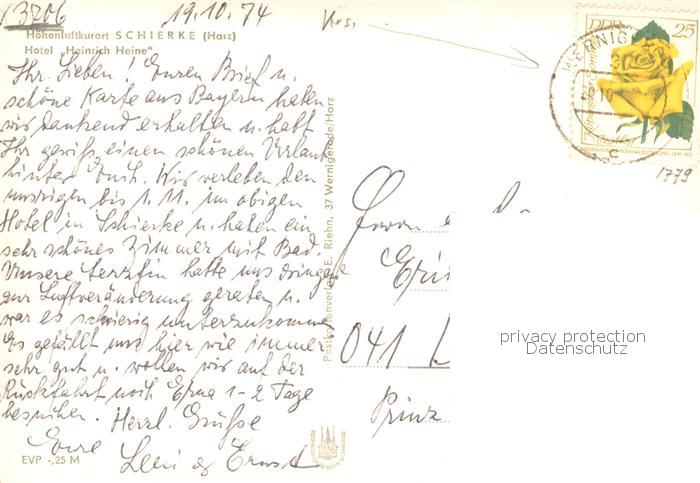 3706
19.10.74
Vrs.
Höhenluftkurort SCHIERKE (Harz)
Hotel „Heinrich Heine"
Ihr Lieben! Euren Brief u.
schöne Karte aus Bayern haben
wir dankend erhalten u. habt
Ihr gewiß einen schönen Urlaub
hinter Euch. Wir verleben den
unsrigen bis 1.11. im obigen
Hotel in Schierke u. haben ein
sehr schönes Zimmer mit Bad.
Unsere Ärztin hatte uns dringend
zur Luftveränderung geraten u.
war es schwierig unterzukommen
Es gefällt uns hier wie immer
sehr gut u. wollen wir auf der
Rückfahrt noch Erna 1-2 Tage
besuchen. Herzl. Grüße
Eure
Leni & Ernst
EVP -,25 M
Postkartenverlag E. Riehn, 37 Wernigerode/Harz
DDR 25
WERNIGE
C
1779
041 L
Prinz
privacy protection
Datenschutz